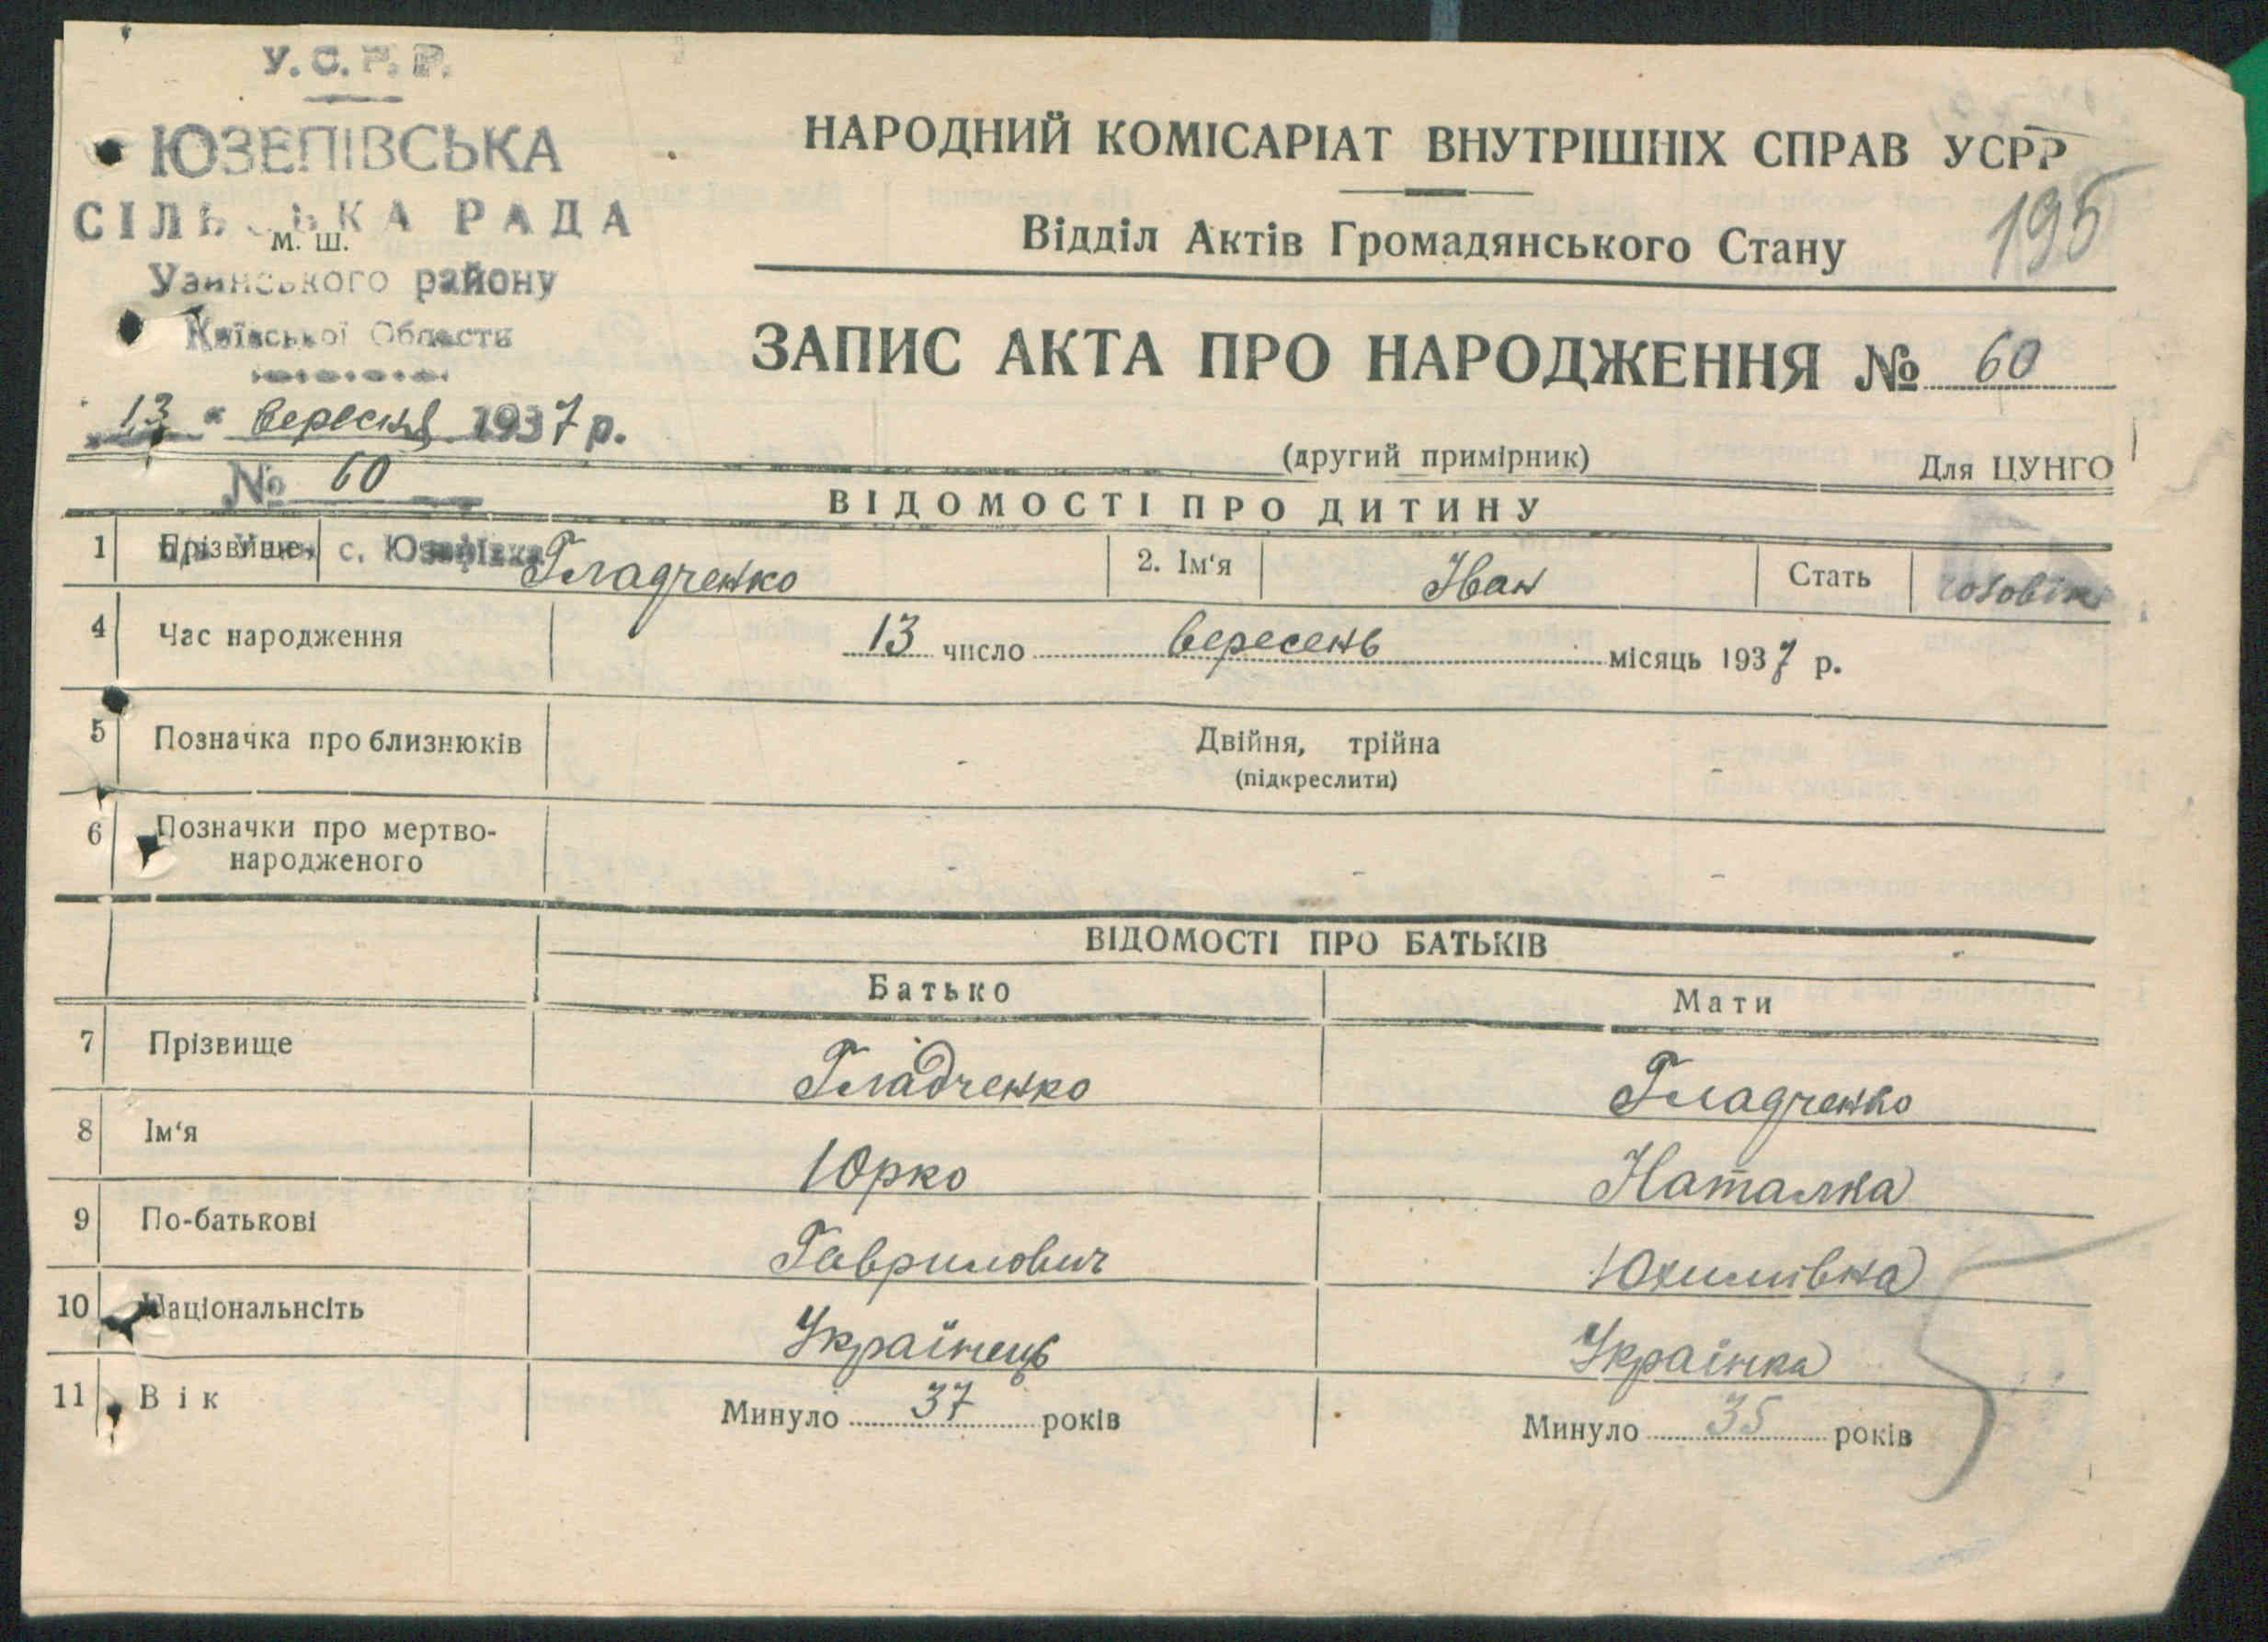 У.С.Р.Р.
ЮЗЕПІВСЬКА
СІЛЬСЬКА РАДА
м. ш.
Узинського району
Київської Області
13 " вересня 1937 р.
№ 60
НАРОДНИЙ КОМІСАРІАТ ВНУТРІШНІХ СПРАВ УСРР
195
Відділ Актів Громадянського Стану
ЗАПИС АКТА ПРО НАРОДЖЕННЯ № 60
(другий примірник) Для ЦУНГО
ВІДОМОСТІ ПРО ДИТИНУ
1 Прізвище с. Юзефівка Гладченко 2. Ім'я Іван Стать чоловік
4 Час народження 13 число вересень місяць 1937 р.
5 Позначка про близнюків Двійня, трійна
(підкреслити)
6 Позначки про мертво-
народженого
ВІДОМОСТІ ПРО БАТЬКІВ
Батько Мати
7 Прізвище Гладченко Гладченко
8 Ім'я Юрко Наталка
9 По-батькові Гаврилович Юхимівна
10 Національнсіть Українець Українка
11 Вік Минуло 37 років Минуло 35 років